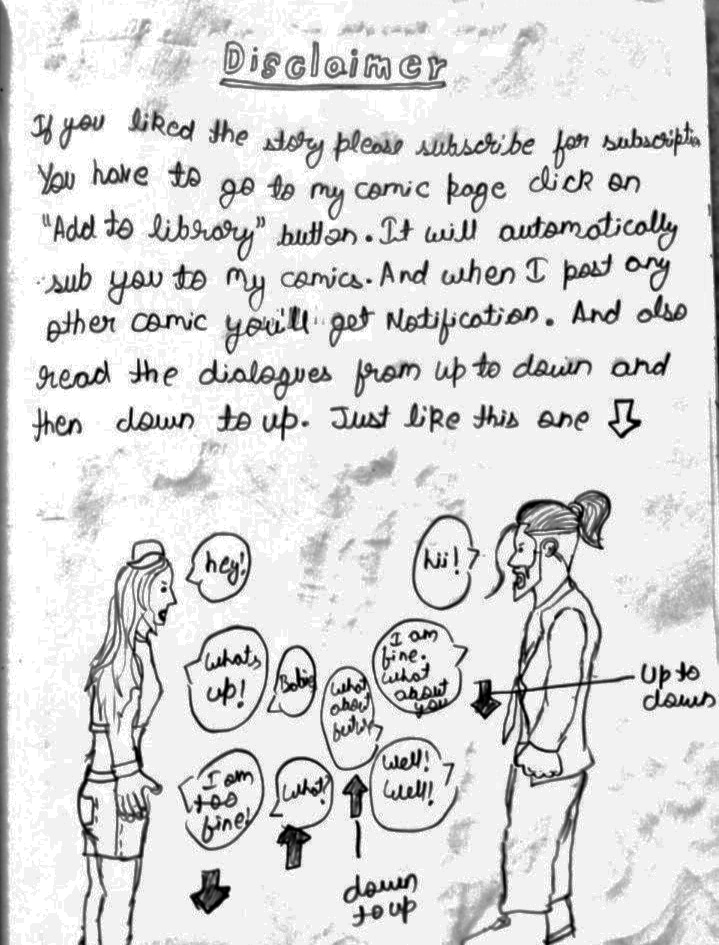 Disclaimer
If you liked the story please subscribe for subscriptio
You have to go to my comic page click on
"Add to library" button. It will automatically
sub you to my comics. And when I post any
other comic you'll get Notification. And also
read the dialogues from up to down and
then down to up. Just like this one
hey!
hii!
Whats
up!
I am
fine.
What
about
you
I am
too
fine!
Well!
Well!
What?
What
about
Up to
down
down
to up